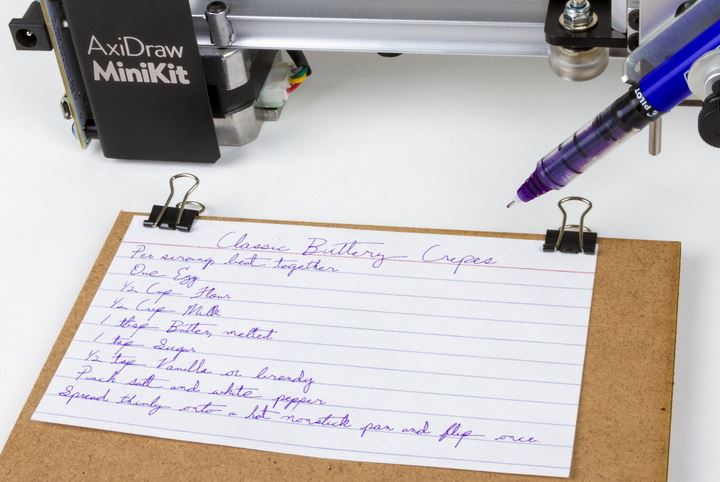 AxiDraw
MiniKit
PILOT
Classic Buttery Crepes
Per serving, beat together
One Egg
1/2 Cup Flour
1/2 Cup Milk
1 tbsp Butter, melted
1 tsp Sugar
1/2 tsp Vanilla or brandy
Pinch salt and white pepper
Spread thinly onto a hot nonstick pan and flip once